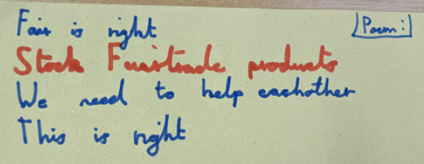 Poem:
Fair is right
Stock Fairtrade products
We need to help eachother
This is right